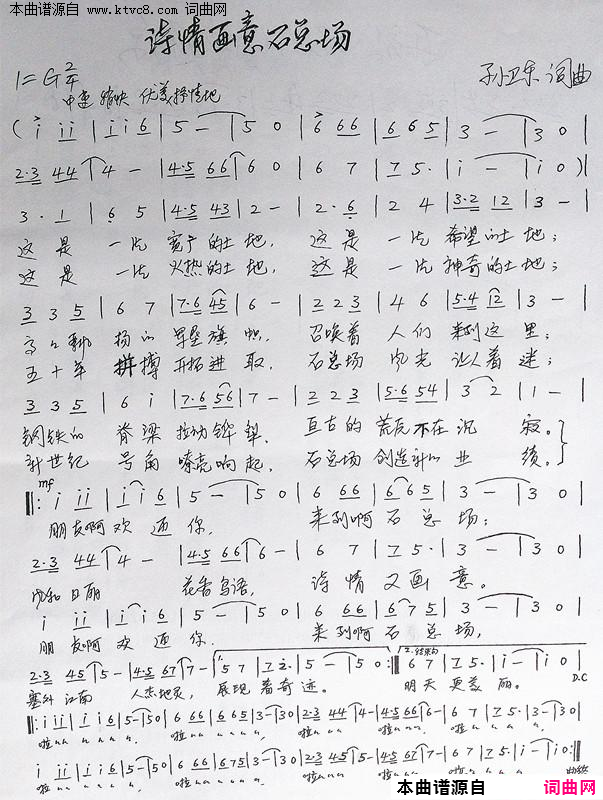 本曲谱源自
www.ktvc8.com 词曲网
诗情画意石总场
1=G 2/4
中速 稍快 优美抒情地
孙卫东 词曲
(i ii | i i 6 | 5 — | 5 0 | 6 66 | 6 6 5 | 3 — | 3 0 |
2·3 44 | 4 — | 4·5 66 | 6 0 | 6 7 | 7 5· | i — | i 0)|
3·1 | 6 5 | 4·5 43 | 2 — | 2·6 | 2 4 | 3·2 12 | 3 — |
这是 一片 宽广的土地, 这是 一片 希望的土地;
这是 一片 火热的土地, 这是 一片 神奇的土地;
3 3 5 | 6 7 | 7·6 45 | 6 — | 2 2 3 | 4 6 | 5·4 12 | 3 — |
高高飘 扬的 军垦旗 帜, 召唤着 人们 来到这 里;
五十年 拼搏 开拓进 取, 石总场 风光 让人着 迷;
3 3 5 | 6 i | 7·6 56 | 7 — | 2 2 3 | 5·6 54 | 3 2 | 1 — |
钢铁的 脊梁 拉动铧 犁, 亘古的 荒原不在沉 寂。
新世纪 号角 嘹亮响 起, 石总场 创造新的业 绩。
mf
‖: i ii | i i 6 | 5 — | 5 0 | 6 66 | 6 6 5 | 3 — | 3 0 |
朋友啊 欢迎 你, 来到啊 石总 场;
2·3 44 | 4 — | 4·5 66 | 6 — | 6 7 | 7 5· | 3 — | 3 0 |
日丽 花香鸟语, 诗情 又画 意。
i ii | i i 6 | 5 — | 5 0 | 6 66 | 6 7 5 | 3 — | 3 0 |
朋友啊 欢迎 你, 来到啊 石总 场,
2·3 45 | 5 — | 4·5 67 | 7 — | 1. 5 7 | 7 2· | 5 — | 5 0 :‖ 2. 结束句 6 7 | 7 5· | i — | i 0 |
塞外江南 人杰地灵, 展现 着奇 迹。 明天 更美 丽。 D.C
‖: i ii | i i 6 | 5 — | 5 0 | 6 66 | 6 6 5 | 3 — | 3 0 | 2·3 44 | 4 — | 4·5 66 | 6 — | 6 7 | 7 5· | 3 — | 3 0 |
啦〃〃 〃〃〃, 啦〃〃 〃〃〃, 啦〃〃〃 啦〃〃〃 啦〃〃〃〃,
i ii | i i 6 | 5 — | 5 0 | 6 66 | 6 7 5 | 3 — | 3 0 | 2·3 45 | 5 — | 4·5 67 | 7 — | 6 7 | 7 5· | i — | i 0 :‖
啦〃〃 〃〃〃, 啦〃〃 〃〃〃, 啦〃〃〃 啦〃〃〃 啦〃〃〃〃,
本曲谱源自 词曲网